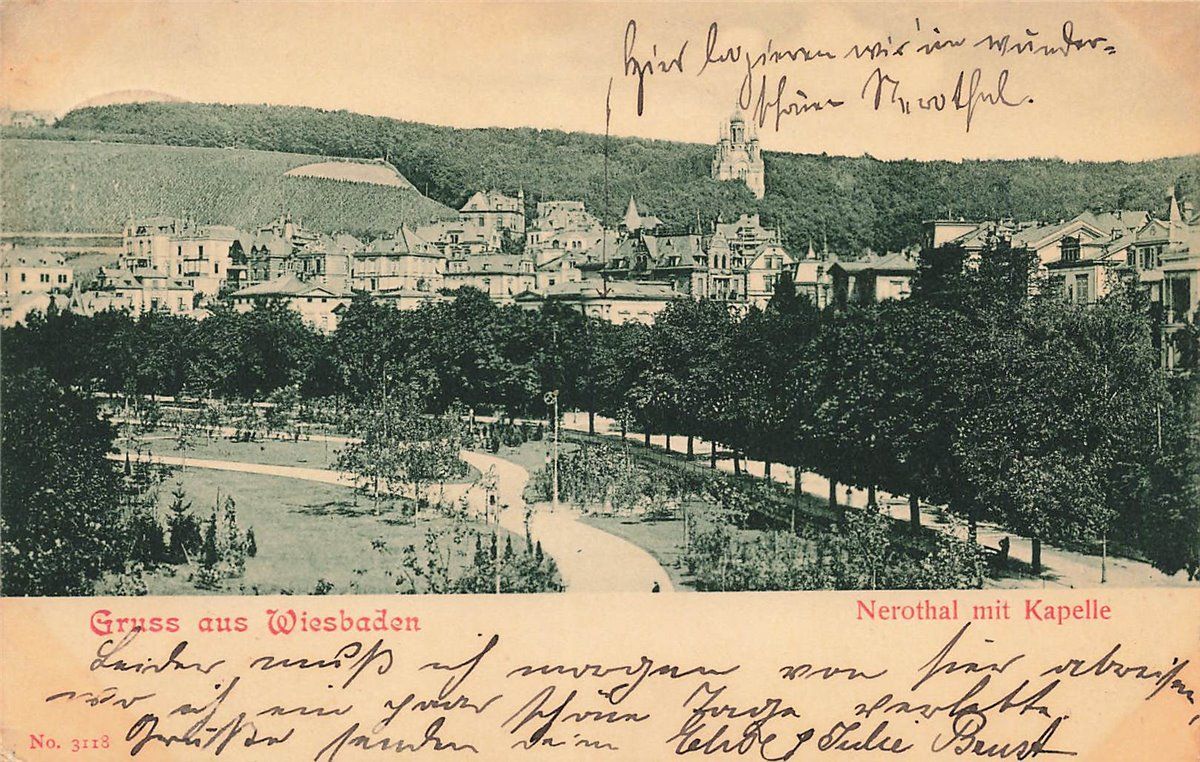 Hier logieren wir im wunder-
schönen Nerothal.
Gruss aus Wiesbaden
Nerothal mit Kapelle
Leider muß ich morgen von hier abreisen
wo ich ein paar schöne Tage verlebte.
No. 3118
Grüße senden Julie Brust